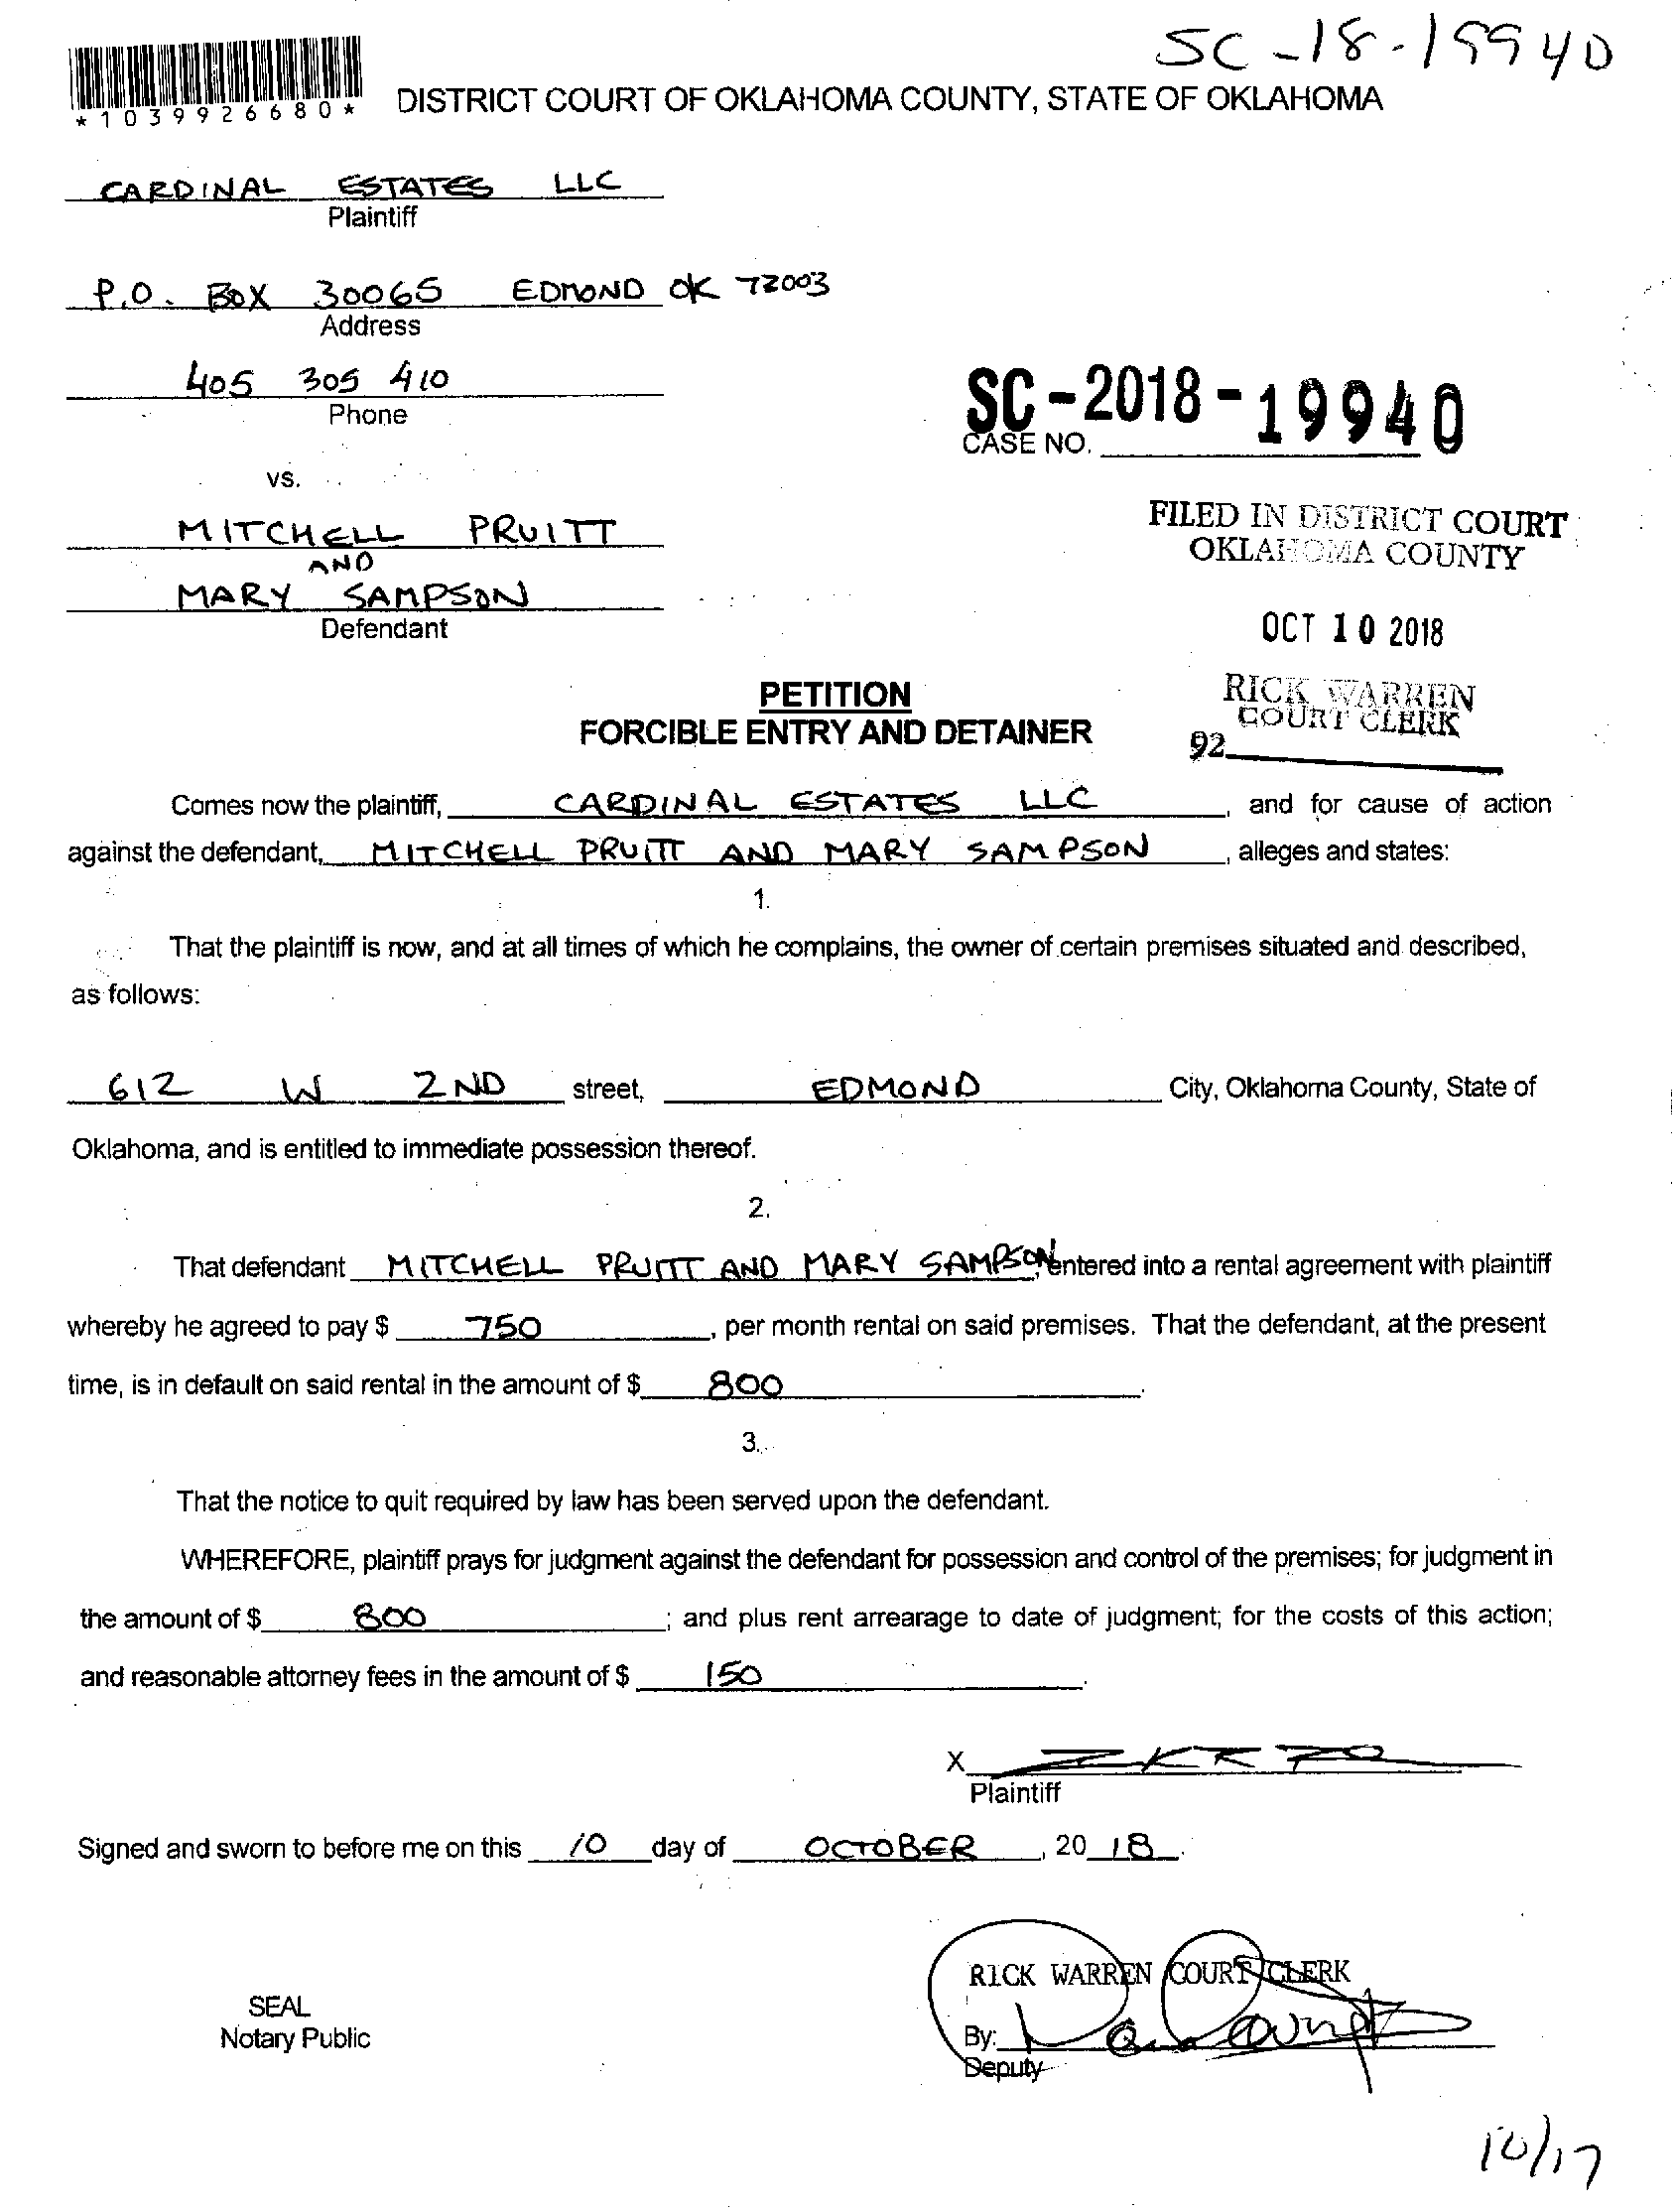 SC-18-19940
*1039926680*
DISTRICT COURT OF OKLAHOMA COUNTY, STATE OF OKLAHOMA
CARDINAL ESTATES LLC
Plaintiff
P.O. BOX 30065 EDMOND OK 73003
Address
405 305 410
Phone
SC-2018-19940
CASE NO.
vs.
FILED IN DISTRICT COURT
OKLAHOMA COUNTY
MITCHELL PRUITT
AND
MARY SAMPSON
Defendant
OCT 10 2018
RICK WARREN
COURT CLERK
92
PETITION
FORCIBLE ENTRY AND DETAINER
Comes now the plaintiff, CARDINAL ESTATES LLC, and for cause of action
against the defendant, MITCHELL PRUITT AND MARY SAMPSON, alleges and states:
1.
That the plaintiff is now, and at all times of which he complains, the owner of certain premises situated and described,
as follows:
612 W 2ND street, EDMOND City, Oklahoma County, State of
Oklahoma, and is entitled to immediate possession thereof.
2.
That defendant MITCHELL PRUITT AND MARY SAMPSON, entered into a rental agreement with plaintiff
whereby he agreed to pay $ 750, per month rental on said premises. That the defendant, at the present
time, is in default on said rental in the amount of $ 800.
3.
That the notice to quit required by law has been served upon the defendant.
WHEREFORE, plaintiff prays for judgment against the defendant for possession and control of the premises; for judgment in
the amount of $ 800; and plus rent arrearage to date of judgment; for the costs of this action;
and reasonable attorney fees in the amount of $ 150.
X
Plaintiff
Signed and sworn to before me on this 10 day of OCTOBER, 20 18.
RICK WARREN COURT CLERK
SEAL
Notary Public
By:
Deputy
10/17